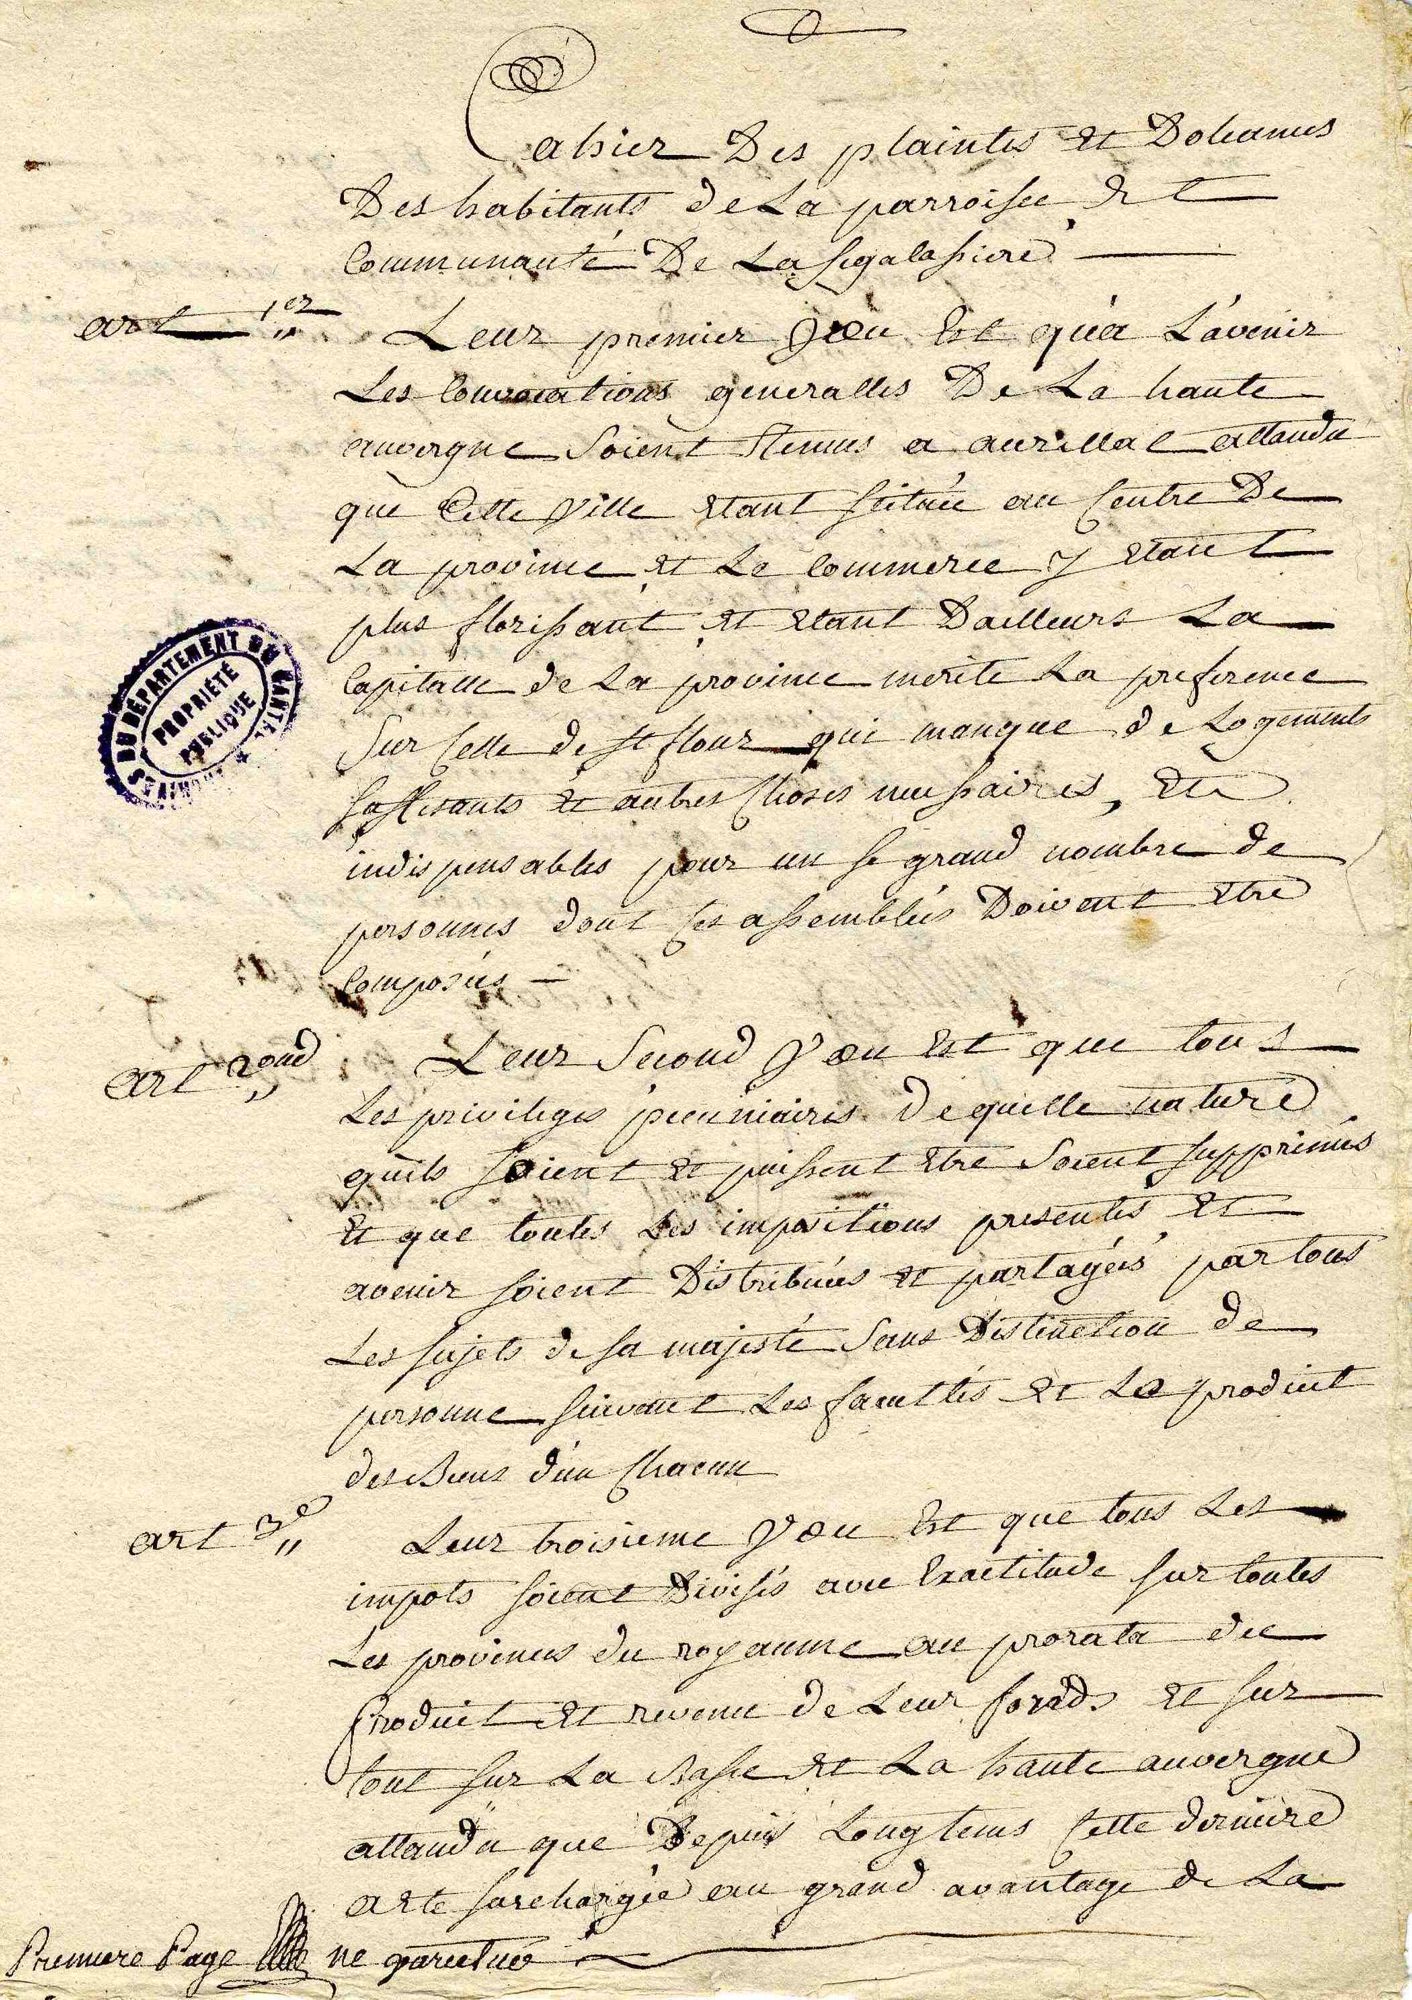 Cahier Des plaintes et Doleances
Des habitants de La parroisse et
Communauté De Lasegalassiere
art 1er Leur premier voeu Est qu'a L'avenir
Les Convocations generalles De La haute
auvergne Soient tenues a aurillac attandu
que Cette ville etant scituée au Centre De
La province et Le Commerce y etant
plus florissant et etant Dailleurs La
Capitalle de La province merite La preference
Sur Celle de st flour qui manque de Logements
suffisants et autres Choses necessaires, et
indispensables pour un se grand nombre de
personnes dont Ces assemblées Doivent etre
Composées
art 2ond Leur Second voeu Est que tous
Les privileges pecuniaires de quelle nature
quils soient et puissent etre Soient supprimés
et que toutes Les impositions presentes et
avenir soient Distribuées et partagées par tous
Les sujets de sa majesté Sans Distinction de
personne suivant Les facultés et Le produit
des Biens d'un Chacun
art 3e Leur troisieme voeu Est que tous Les
impots soient Divisés avec Exactitude sur toutes
Les provinces du royaume au prorata du
produit et revenu de Leur fonds et sur
tout sur La Basse et La haute auvergne
attandu que Depuis Longtems Cette derniere
a ete surchargée au grand avantage de La
Premiere Page ne varietur
ARCHIVES DU DÉPARTEMENT DU CANTAL
PROPRIÉTÉ
PUBLIQUE